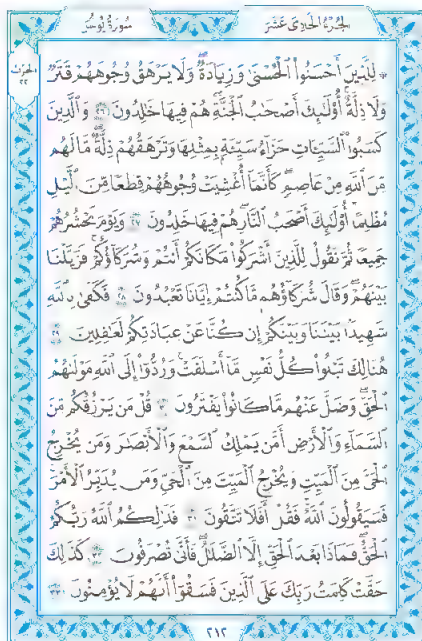 الجزء الحادي عشر
سورة يونس
الحزب
٢٢
لِّلَّذِينَ أَحْسَنُوا۟ ٱلْحُسْنَىٰ وَزِيَادَةٌ ۖ وَلَا يَرْهَقُ وُجُوهَهُمْ قَتَرٌ
وَلَا ذِلَّةٌ ۚ أُو۟لَٰٓئِكَ أَصْحَٰبُ ٱلْجَنَّةِ ۖ هُمْ فِيهَا خَٰلِدُونَ ٢٦ وَٱلَّذِينَ
كَسَبُوا۟ ٱلسَّيِّـَٔاتِ جَزَآءُ سَيِّئَةٍۭ بِمِثْلِهَا وَتَرْهَقُهُمْ ذِلَّةٌ ۖ مَّا لَهُم
مِّنَ ٱللَّهِ مِنْ عَاصِمٍ ۖ كَأَنَّمَآ أُغْشِيَتْ وُجُوهُهُمْ قِطَعًا مِّنَ ٱلَّيْلِ
مُظْلِمًا ۚ أُو۟لَٰٓئِكَ أَصْحَٰبُ ٱلنَّارِ ۖ هُمْ فِيهَا خَٰلِدُونَ ٢٧ وَيَوْمَ نَحْشُرُهُمْ
جَمِيعًا ثُمَّ نَقُولُ لِلَّذِينَ أَشْرَكُوا۟ مَكَانَكُمْ أَنتُمْ وَشُرَكَآؤُكُمْ ۚ فَزَيَّلْنَا
بَيْنَهُمْ ۖ وَقَالَ شُرَكَآؤُهُم مَّا كُنتُمْ إِيَّانَا تَعْبُدُونَ ٢٨ فَكَفَىٰ بِٱللَّهِ
شَهِيدًۢا بَيْنَنَا وَبَيْنَكُمْ إِن كُنَّا عَنْ عِبَادَتِكُمْ لَغَٰفِلِينَ ٢٩
هُنَالِكَ تَبْلُوا۟ كُلُّ نَفْسٍ مَّآ أَسْلَفَتْ ۚ وَرُدُّوٓا۟ إِلَى ٱللَّهِ مَوْلَىٰهُمُ
ٱلْحَقِّ ۖ وَضَلَّ عَنْهُم مَّا كَانُوا۟ يَفْتَرُونَ ٣٠ قُلْ مَن يَرْزُقُكُم مِّنَ
ٱلسَّمَآءِ وَٱلْأَرْضِ أَمَّن يَمْلِكُ ٱلسَّمْعَ وَٱلْأَبْصَٰرَ وَمَن يُخْرِجُ
ٱلْحَىَّ مِنَ ٱلْمَيِّتِ وَيُخْرِجُ ٱلْمَيِّتَ مِنَ ٱلْحَىِّ وَمَن يُدَبِّرُ ٱلْأَمْرَ ۚ
فَسَيَقُولُونَ ٱللَّهُ ۚ فَقُلْ أَفَلَا تَتَّقُونَ ٣١ فَذَٰلِكُمُ ٱللَّهُ رَبُّكُمُ
ٱلْحَقُّ ۖ فَمَاذَا بَعْدَ ٱلْحَقِّ إِلَّا ٱلضَّلَٰلُ ۖ فَأَنَّىٰ تُصْرَفُونَ ٣٢ كَذَٰلِكَ
حَقَّتْ كَلِمَتُ رَبِّكَ عَلَى ٱلَّذِينَ فَسَقُوٓا۟ أَنَّهُمْ لَا يُؤْمِنُونَ ٣٣
٢١٢